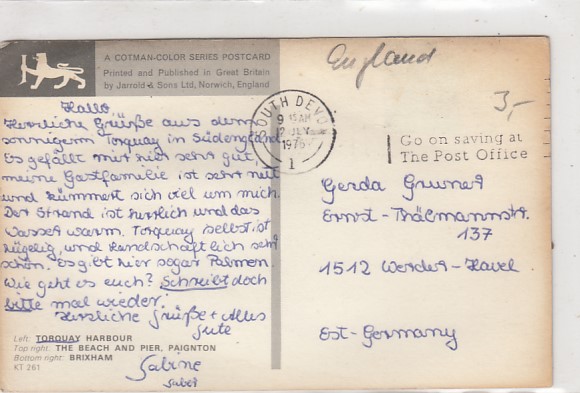 A COTMAN-COLOR SERIES POSTCARD
Printed and Published in Great Britain
by Jarrold & Sons Ltd, Norwich, England
England
3,-
SOUTH DEVON
9 15 AM
12 JLY
1976
1
Go on saving at
The Post Office
Hallo
Herzliche Grüße aus dem
sonnigem Torquay in Südengland
Es gefällt mir hier sehr gut,
meine Gastfamilie ist sehr nett
und kümmert sich viel um mich.
Der Strand ist herrlich und das
Wasser warm. Torquay selbst ist
hügelig, und landschaftlich sehr
schön. Es gibt hier sogar Palmen.
Wie geht es euch? Schreibt doch
bitte mal wieder!
Herzliche Grüße + Alles
Gute
Sabine
Gerda Gruner
Ernst-Thälmannstr.
137
1512 Werder-Havel
Est-Germany
Left: TORQUAY HARBOUR
Top right: THE BEACH AND PIER, PAIGNTON
Bottom right: BRIXHAM
KT 261